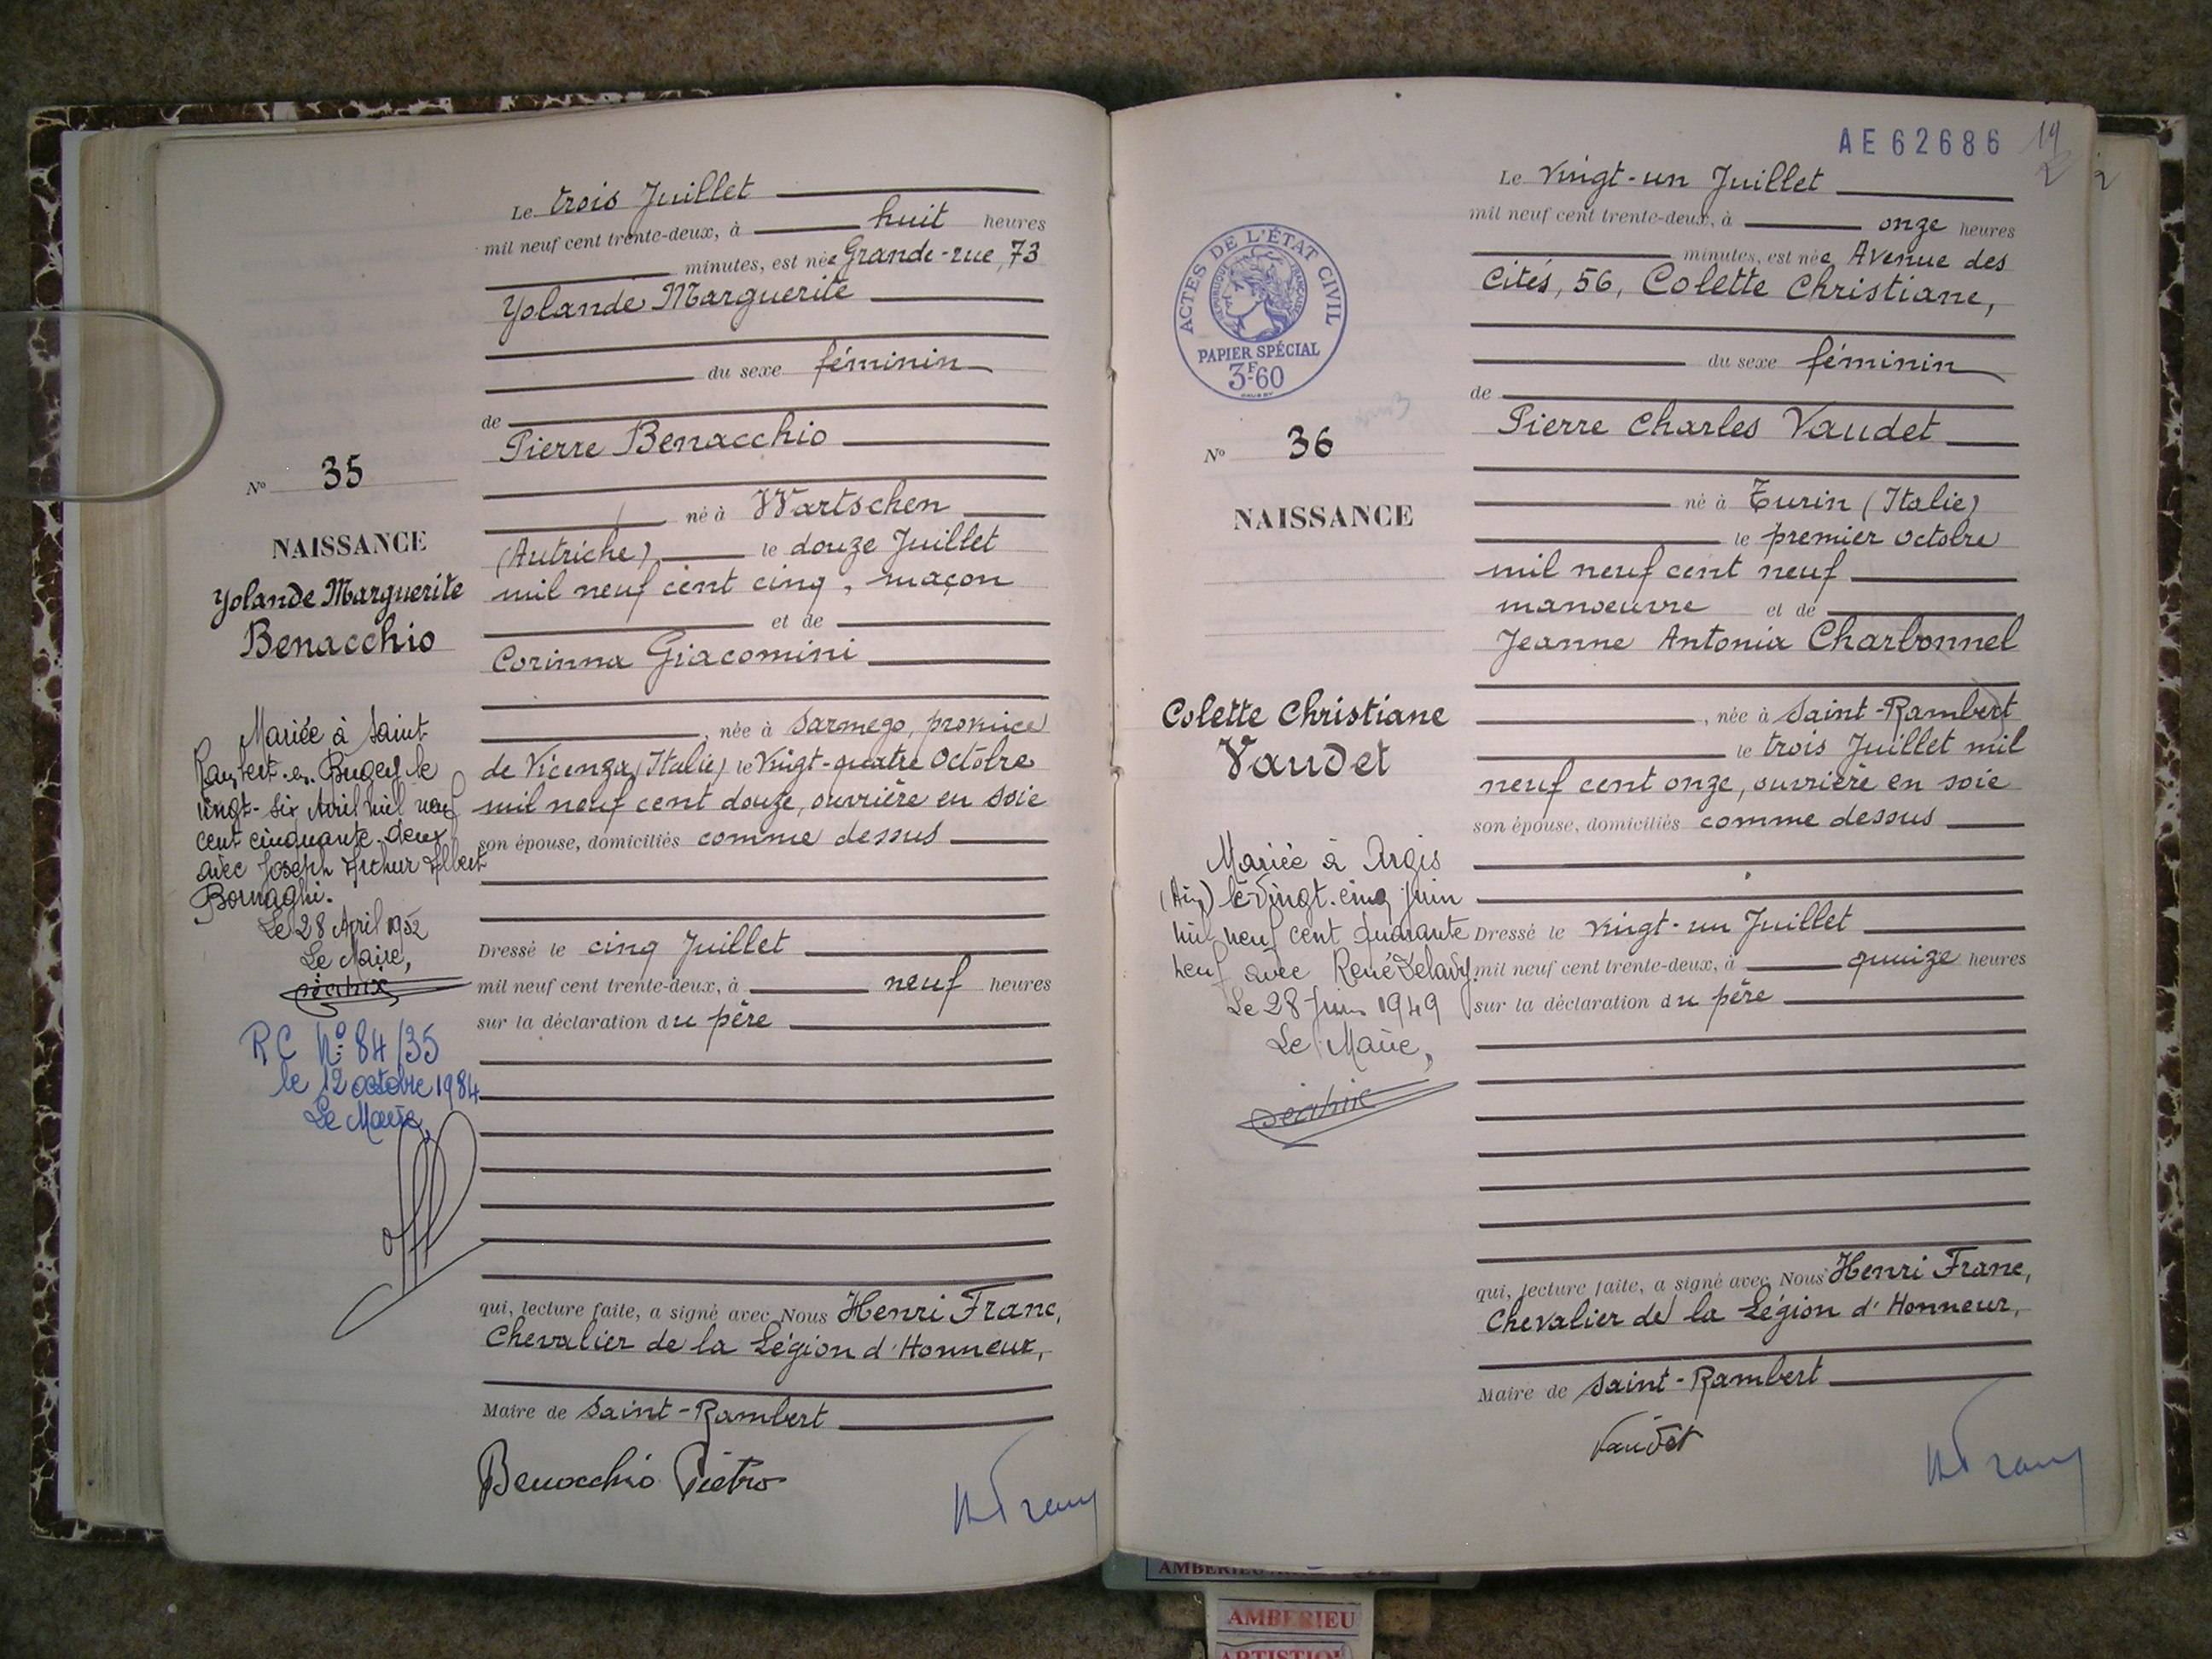 Le trois Juillet
mil neuf cent trente-deux, à huit heures
minutes, est née Grande-rue, 73
Yolande Marguerite
du sexe féminin
de
Pierre Benacchio
né à Wartschen
(Autriche) le douze Juillet
mil neuf cent cinq, maçon
et de
Corinna Giacomini
, née à Sarmego, province
de Vicenza (Italie) le Vingt-quatre Octobre
mil neuf cent douze, ouvrière en soie
son épouse, domiciliés comme dessus
Dressé le cinq Juillet
mil neuf cent trente-deux, à neuf heures
sur la déclaration du père
qui, lecture faite, a signé avec Nous Henri Franc,
Chevalier de la Légion d'Honneur,
Maire de Saint-Rambert
Benacchio Pietro
N° 35
NAISSANCE
Yolande Marguerite
Benacchio
Mariée à Saint
Rambert-en-Bugey le
vingt-six Avril mil neuf
cent cinquante-deux
avec Joseph Arthur Albert
Bornaghi.
Le 28 Avril 1952
Le Maire,
RC N° 84/35
le 12 octobre 1984
Le Maire,
AE 62686
19
2
2
Le Vingt-un Juillet
mil neuf cent trente-deux, à onze heures
minutes, est née Avenue des
Cités, 56, Colette Christiane,
du sexe féminin
de
Pierre Charles Vaudet
né à Turin (Italie)
le premier octobre
mil neuf cent neuf
manoeuvre et de
Jeanne Antonia Charbonnel
, née à Saint-Rambert
le trois Juillet mil
neuf cent onze, ouvrière en soie
son épouse, domiciliés comme dessus
Dressé le Vingt-un Juillet
mil neuf cent trente-deux, à quinze heures
sur la déclaration du père
qui, lecture faite, a signé avec Nous Henri Franc,
Chevalier de la Légion d'Honneur,
Maire de Saint-Rambert
Vaudet
ACTES DE L'ÉTAT CIVIL
RÉPUBLIQUE FRANÇAISE
PAPIER SPÉCIAL
3F60
N° 36
NAISSANCE
Colette Christiane
Vaudet
Mariée à Argis
(Ain) le vingt-cinq juin
mil neuf cent quarante
neuf avec René Delavy.
Le 28 Juin 1949
Le Maire,
AMBERIEU
AMBERIEU
ARTISTIQUE